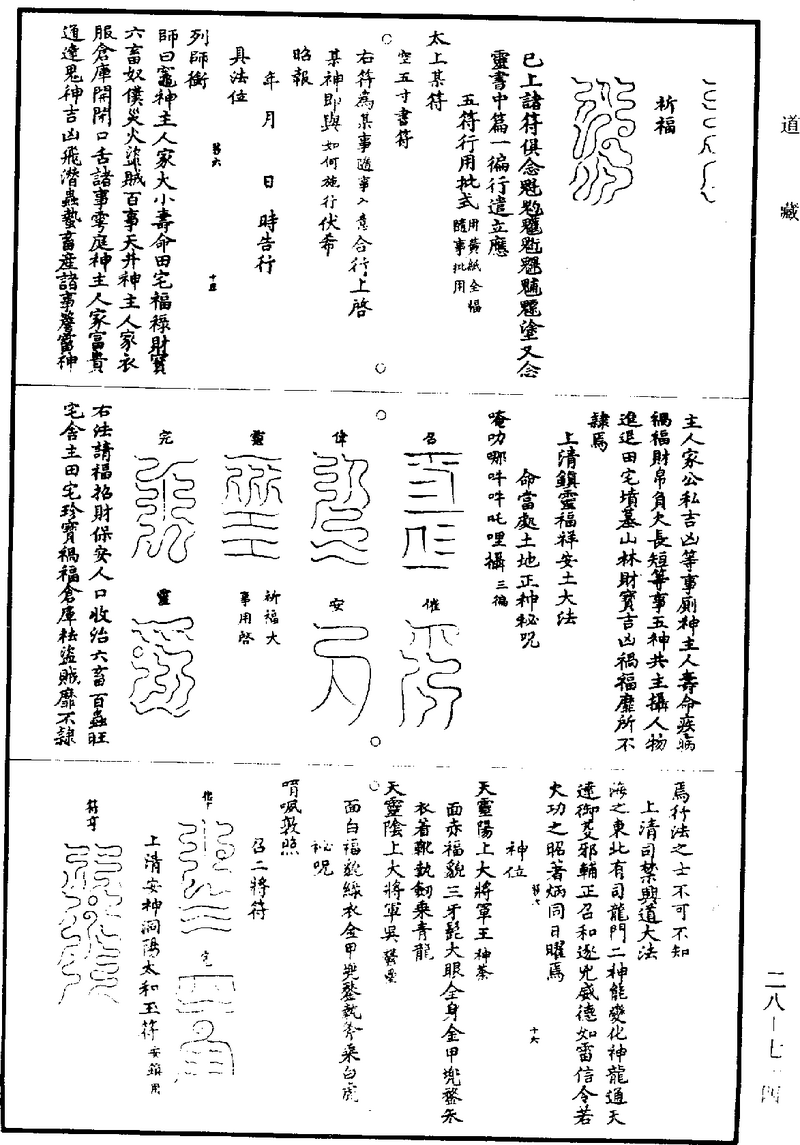 道藏
祈福
已上諸符俱念魁𩲃䰢魓𩳐𩵄魒塗又念
靈書中篇一徧行遣立應
五符行用批式用黃紙全幅隨事批用
太上某符
空五寸書符
右符為某事隨事入意合行上啓
某神即與如何施行伏希
昭報
年 月 日 時告行
具法位
列師銜
師曰竈神主人家大小壽命田宅福祿財寶
六畜奴僕災火盜賊百事天井神主人家衣
服倉庫開閉口舌諸事雩庭神主人家富貴
道達鬼神吉凶飛潛蟲蟄畜產諸事神
主人家公私吉凶等事廁神主人壽命疾病
禍福財帛負欠長短等事五神共主攝人物
進退田宅墳墓山林財寶吉凶禍福靡所不
隸焉
上清鎮靈福祥安土大法
命當處土地正神秘呪
唵叻哪吽吽吒哩攝三徧
召
催
偉
安
靈
祈福大事用啓
完
靈
右法請福招財保安人口收治六畜百蟲旺
宅舍土田宅珍寶禍福倉庫袪盜賊靡不隸
焉行法之士不可不知
上清司禁與道大法
海之東北有司龍門二神能變化神龍通天
達御芟邪輔正召和逐兇威德如雷信令若
火功之昭著炳同日曜焉
神位
天靈陽上大將軍王神榮
面赤福貌三牙髭大眼全身金甲兜鍪朱
衣着靴執劒乘青龍
天靈陰上大將軍吳
面白福貌綠衣金甲兜鍪執斧乘白虎
祕呪
唷㖃敦照
召二將符
上清安神洞陽太和玉符安鎮用
二八—七一四